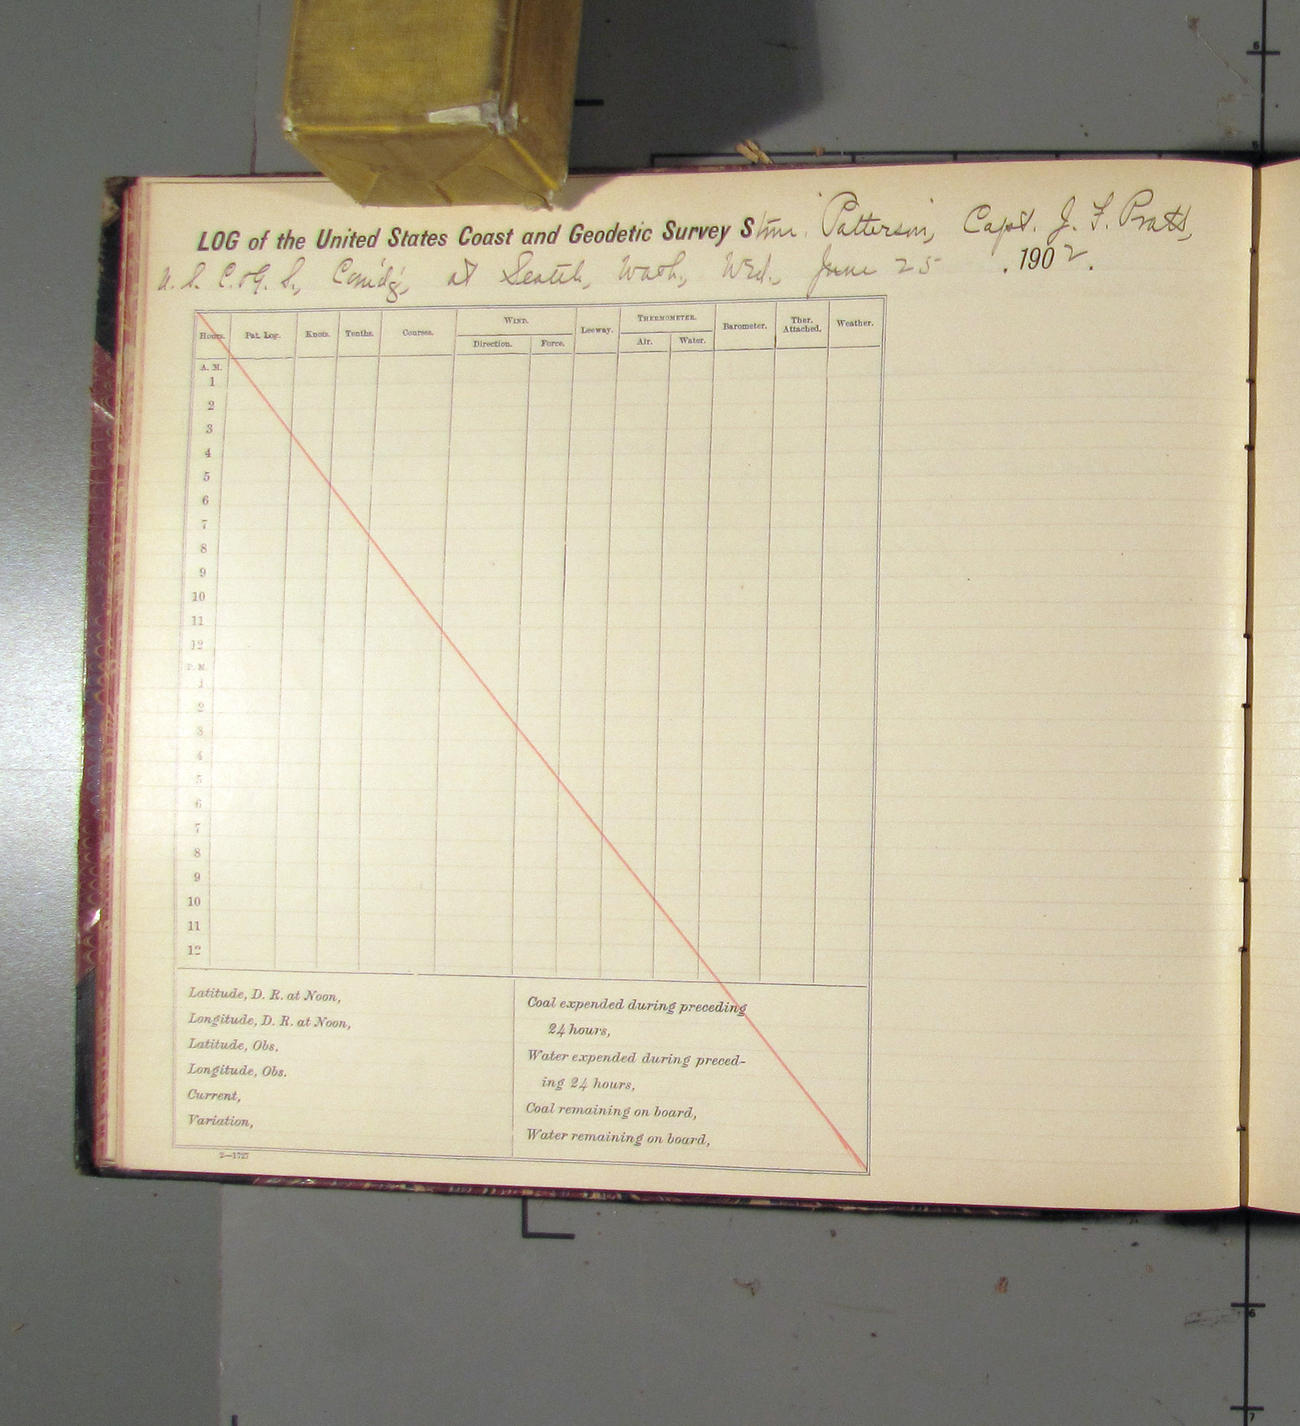 LOG of the United States Coast and Geodetic Survey Stmr. "Patterson", Capt. J. F. Pratt,
U. S. C. & G. S., Com'd'g, at Seattle, Wash., Wed., June 25, 1902.
Hours. Pat. Log. Knots. Tenths. Courses. WIND. Leeway. THERMOMETER. Barometer. Ther. Attached. Weather.
Direction. Force. Air. Water.
A. M.
1
2
3
4
5
6
7
8
9
10
11
12
P. M.
1
2
3
4
5
6
7
8
9
10
11
12
Latitude, D. R. at Noon,
Longitude, D. R. at Noon,
Latitude, Obs.
Longitude, Obs.
Current,
Variation,
Coal expended during preceding
24 hours,
Water expended during preced-
ing 24 hours,
Coal remaining on board,
Water remaining on board,
2—1727
5
6
7